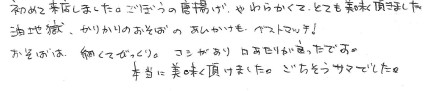 初めて来店しました。ごぼうの唐揚げ、やわらかくて、とても美味く頂きました
油地獄、かりかりのおそばのあんかけも、ベストマッチ!
おそばは、細くてびっくり。コシがあり 口あたりが良ったです。
本当に美味く頂けました。ごちそうサマでした。